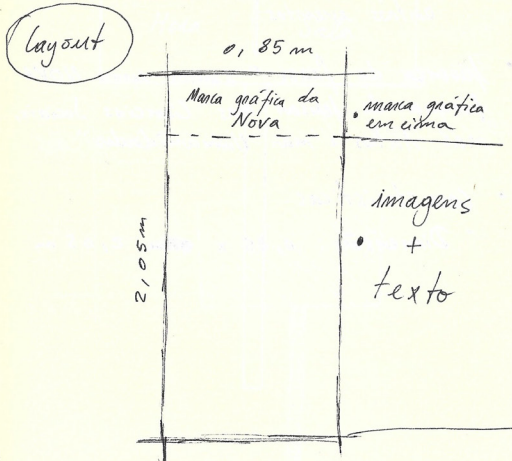 Layout
0,85m
Marca gráfica da
Nova
• marca gráfica
em cima
2,05m
imagens
• +
texto